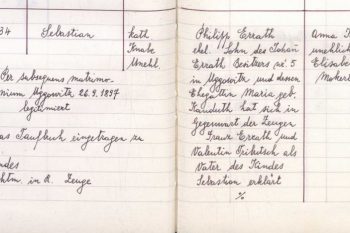 34
Sebastian
kath
Knabe
Unehl.
Per subsequens matrimo-
nium Uggowitz 26.9.1897
legitimiert
das Taufbuch eingetragen zu
Kindes
in R. Zeuge
Philipp Errath
ehel. Sohn des Johann
Errath Besitzers № 5
in Uggowitz und dessen
Ehegattin Maria geb.
hat sich in
Gegenwart der Zeugen
Franz Errath und
Valentin Tributsch als
Vater des Kindes
Sebastian erklärt
%
Anna
unehlich
Elisabe